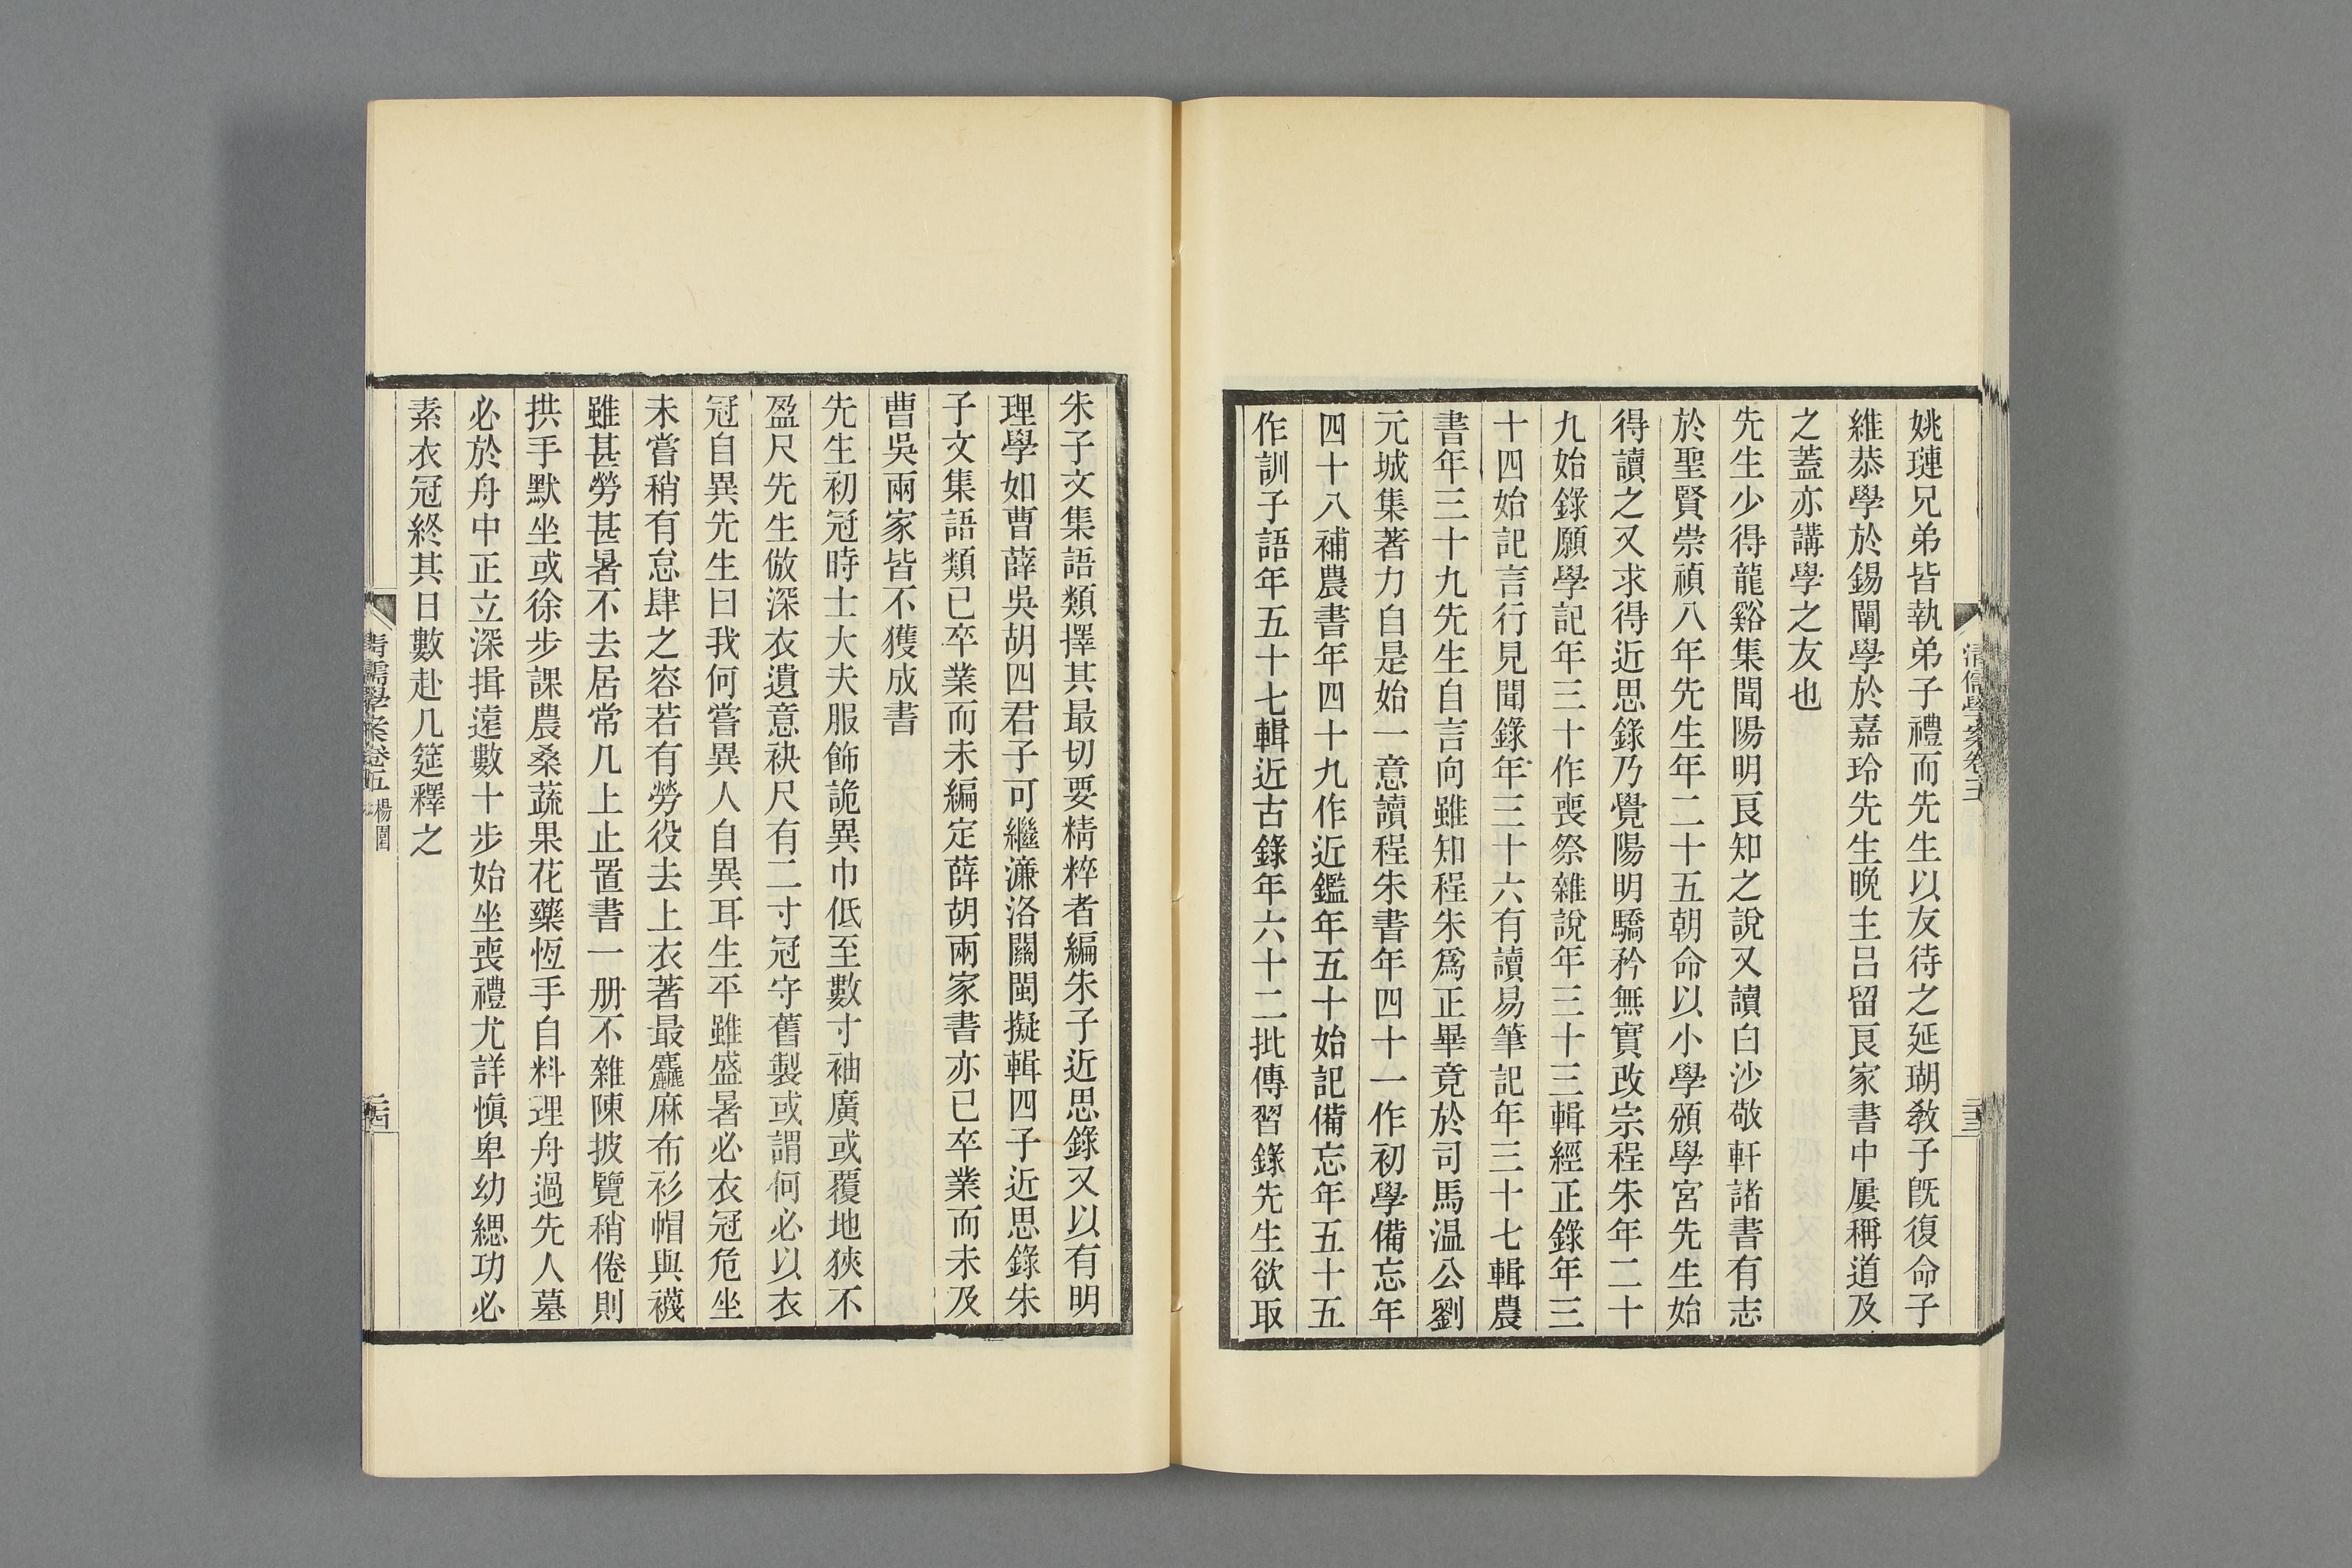 姚璉兄弟皆執弟子禮而先生以友待之延瑚敎子旣復命子
維恭學於錫闡學於嘉玲先生晚主呂留良家書中屢稱道及
之蓋亦講學之友也
先生少得龍谿集聞陽明良知之說又讀白沙敬軒諸書有志
於聖賢崇禎八年先生年二十五朝命以小學頒學宮先生始
得讀之又求得近思錄乃覺陽明驕矜無實改宗程朱年二十
九始錄願學記年三十作喪祭雜說年三十三輯經正錄年三
十四始記言行見聞錄年三十六有讀易筆記年三十七輯農
書年三十九先生自言向雖知程朱爲正畢竟於司馬溫公劉
元城集著力自是始一意讀程朱書年四十一作初學備忘年
四十八補農書年四十九作近鑑年五十始記備忘年五十五
作訓子語年五十七輯近古錄年六十二批傳習錄先生欲取
清儒學案卷五
二三
朱子文集語類擇其最切要精粹者編朱子近思錄又以有明
理學如曹薛吳胡四君子可繼濂洛關閩擬輯四子近思錄朱
子文集語類已卒業而未編定薛胡兩家書亦已卒業而未及
曹吳兩家皆不獲成書
先生初冠時士大夫服飾詭異巾低至數寸袖廣或覆地狹不
盈尺先生倣深衣遺意袂尺有二寸冠守舊製或謂何必以衣
冠自異先生曰我何嘗異人自異耳生平雖盛暑必衣冠危坐
未嘗稍有怠肆之容若有勞役去上衣著最麤麻布衫帽與襪
雖甚勞甚暑不去居常几上止置書一册不雜陳披覽稍倦則
拱手默坐或徐步課農桑蔬果花藥恆手自料理舟過先人墓
必於舟中正立深揖遠數十步始坐喪禮尤詳愼卑幼緦功必
素衣冠終其日數赴几筵釋之
清儒學案卷五 楊園
二四